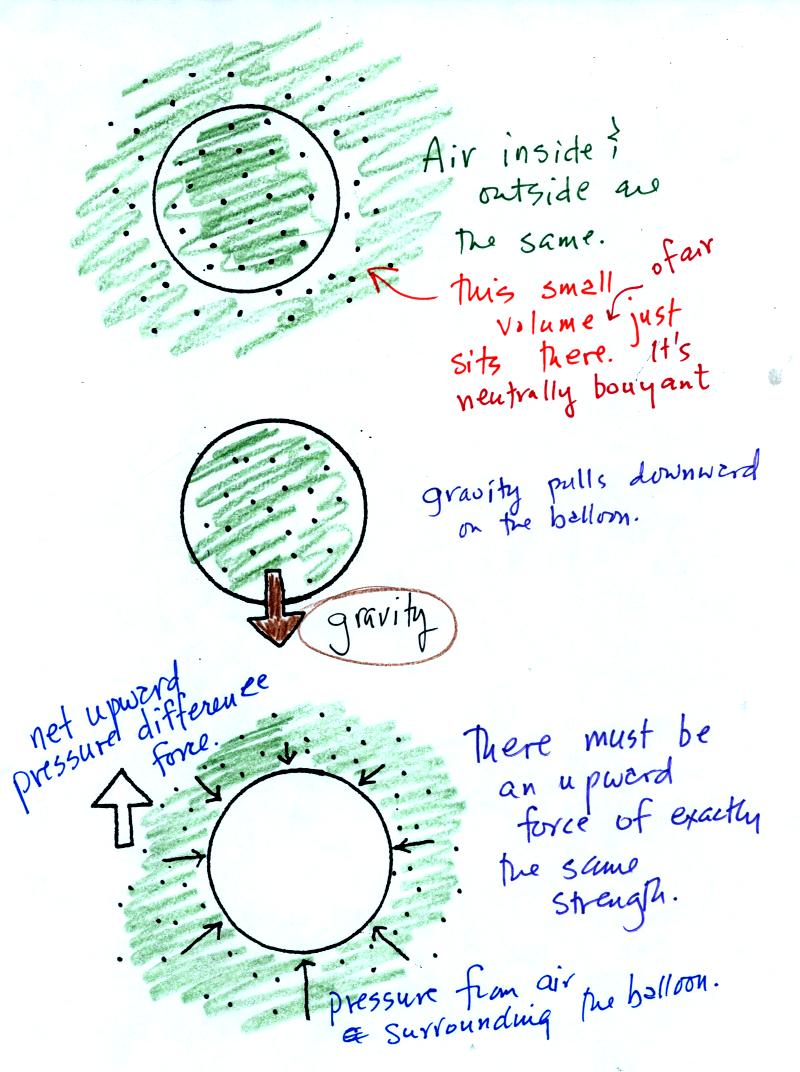 Air inside &
outside are
the same.
this small of air
volume just
sits there. It's
neutrally bouyant
gravity pulls downward
on the balloon.
gravity
net upward
pressure difference
force.
There must be
an upward
force of exactly
the same
strength.
pressure from air
surrounding the balloon.